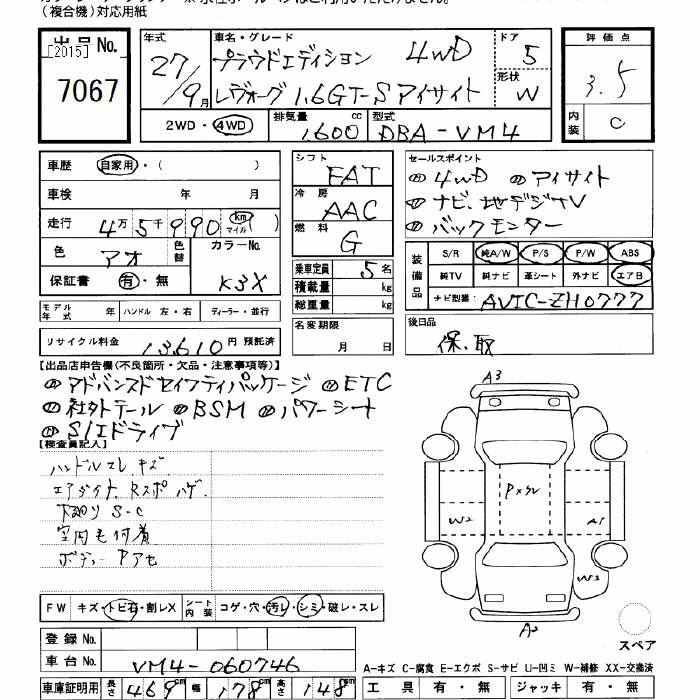 (複合機)対応用紙
出品No. [2015] 7067
年式 27/9月
車名・グレード プラウドエディション 4WD
レヴォーグ 1.6GT-S アイサイト
ドア 5
形状 W
評価点 3.5
内装 C
2WD・4WD
排気量 1,600 cc
型式 DBA-VM4
車歴 自家用・( )
車検 年 月
走行 4万5千990 km マイル ( )
色 アオ 色替 カラーNo. K3X
保証書 有・無
シフト FAT
冷房 AAC
燃料 G
乗車定員 5名
積載量 kg
総重量 kg
セールスポイント
①4WD ②アイサイト
③ナビ、地デジTV
④バックモンター
装備品 S/R 純A/W P/S P/W ABS
純TV 純ナビ 革シート 外ナビ エアB
ナビ型番 AVIC-ZH0777
モデル年式 年 ハンドル 左・右 ディーラー・並行
名変期限 月 日
後日品 保、取
リサイクル料金 13,610円 預託済
【出品店申告欄(不良箇所・欠品・注意事項等)】
アドバンスドセイフティパッケージ ETC
社外テール BSM パワーシート
SIドライブ
【検査員記入】
ハンドルスレ、キズ
Rスポ ハゲ
下廻り S-C
室内毛付着
ボディー Pアセ
FW キズ・トビ石・割レX シート内装 コゲ・穴・汚レ・シミ・破レ・スレ
登録No.
車台No. VM4-060746
車庫証明用 長さ 469cm 幅 178cm 高さ 148cm
A3
W2
A1
W3
スペア
A-キズ C-腐食 E-エクボ S-サビ U-凹ミ W-補修 XX-交換済
工具 有・無 ジャッキ 有・無